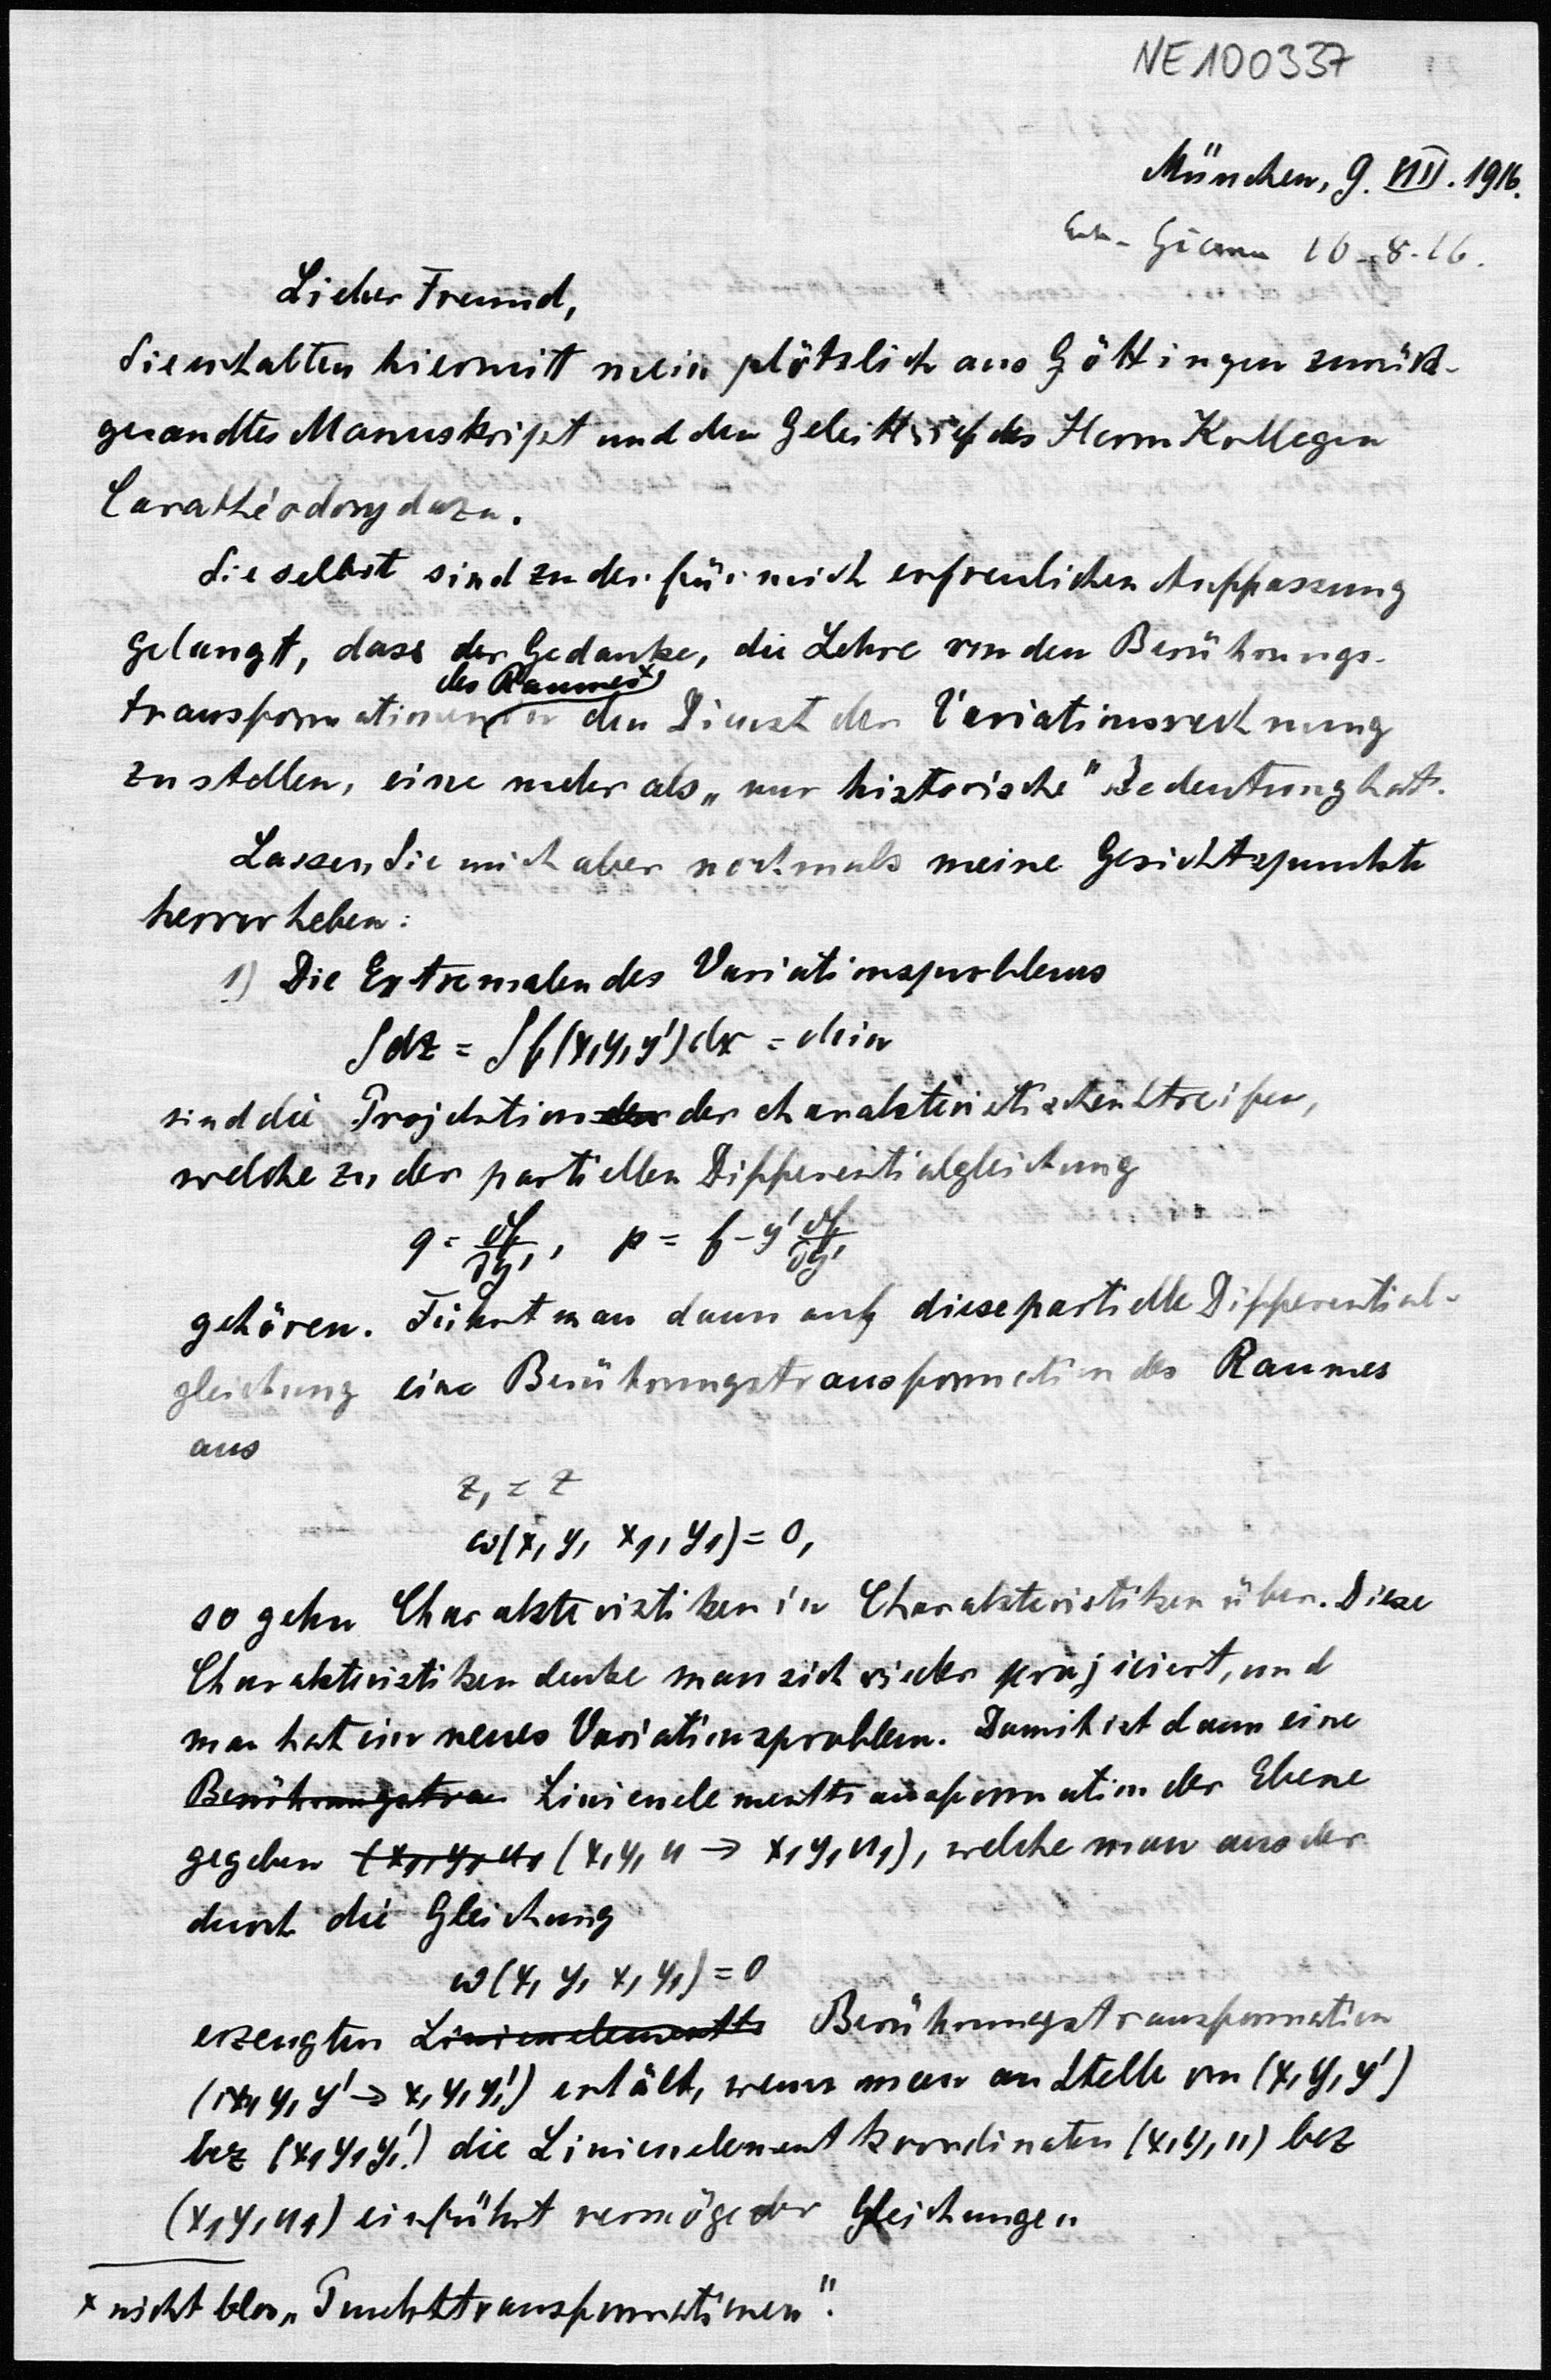 NE 100337
München, 9. VIII. 1916.
16-8-16.
Lieber Freund,
Sie erhalten hiermitt mein plötzlich aus Göttingen zurück-
gesandtes Manuskript und den Geleitbrief des Herrn Kollegen
Carathéodory dazu.
Sie selbst sind zu der für mich erfreulichen Auffassung
gelangt, dass der Gedanke, die Lehre von den Berührungs-
des Raumes ×)
transformationen in den Dienst der Variationsrechnung
zu stellen, eine mehr als „nur historische" Bedeutung hat.
Lassen Sie mich aber nochmals meine Gesichtspunkte
hervorheben:
1) Die Extremalen des Variationsproblems
∫dz = ∫f(x,y,y')dx = Min
sind die Projektion der der charakteristischen Streifen,
welche zu der partiellen Differentialgleichung
q = ∂f/∂y', p = f - y' ∂f/∂y'
gehören. Führt man dann auf diese partielle Differential-
gleichung eine Berührungstransformation des Raumes
aus
z₁ = z
ω(x, y, x₁, y₁) = 0,
so gehn Charakteristiken in Charakteristiken über. Diese
Charakteristiken denke man sich wieder projiciert, und
man hat ein neues Variationsproblem. Damit ist dann eine
Berührungstra Linienelementtransformation der Ebene
gegeben (x₁, y₁ u₁ (x, y, u → x₁ y₁ u₁), welche man aus der
durch die Gleichung
ω(x, y, x₁ y₁) = 0
erzeugten Linienelementt Berührungstransformation
(x, y, y' → x₁ y₁ y₁') erhält, wenn man an Stelle von (x, y, y')
bez (x₁ y₁ y₁') die Linienelementkoordinaten (x, y, u) bez
(x₁ y₁ u₁) einführt vermöge der Gleichungen
× nicht blos „Punkttransformationen".